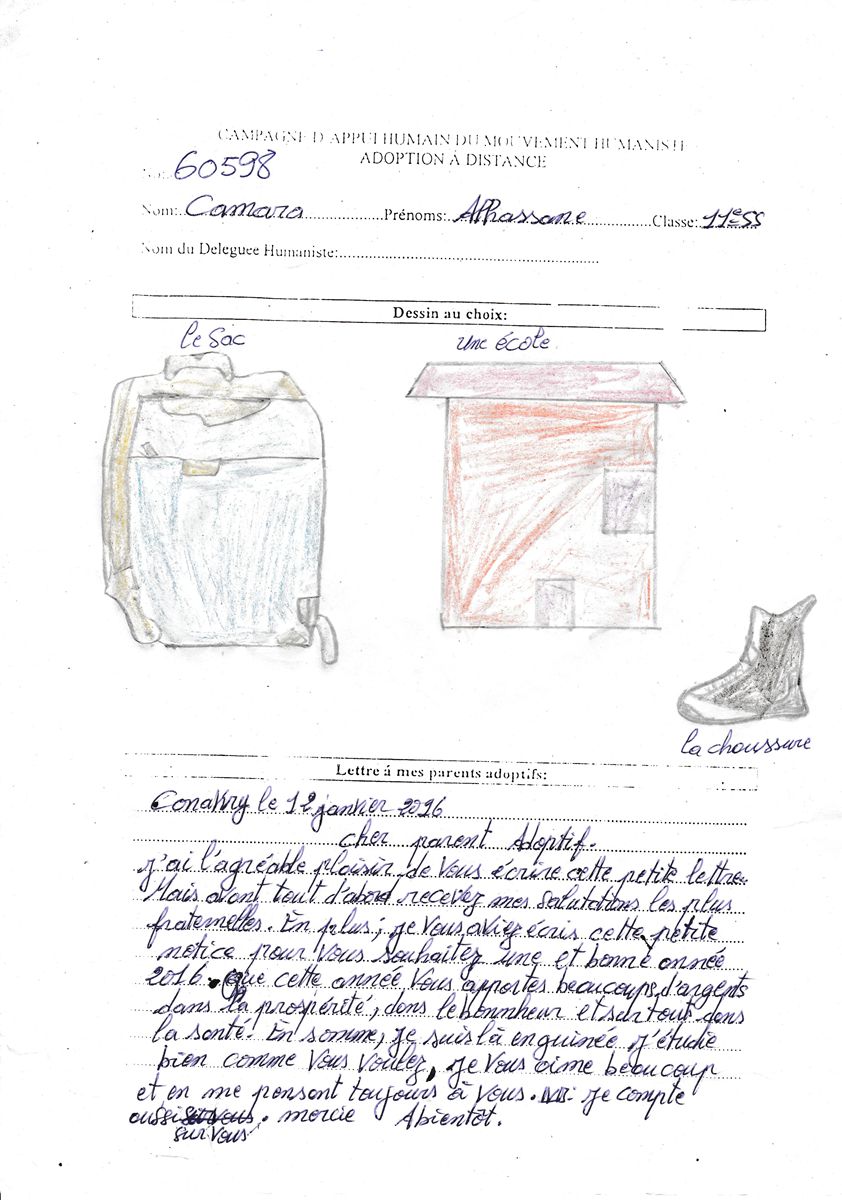 CAMPAGNE D'APPUI HUMAIN DU MOUVEMENT HUMANISTE
ADOPTION À DISTANCE
No: 60598
Nom: Camara Prénoms: Alhassane Classe: 11e SS
Nom du Deleguee Humaniste:
Dessin au choix:
le Sac une école
la choussure
Lettre á mes parents adoptifs:
Conakry le 12 janvier 2016
cher parent Adoptif.
j'ai l'agréable plaisir de vous écrire cette petite lettre.
Mais avant tout d'abord recevez mes salutations les plus
fraternelles. En plus; je vous aviez écris cette petite
notice pour vous souhaitez une et bonne année
2016. que cette année vous apportes beaucoups d'argents
dans la prospérité, dans le bonnheur et surtout dans
la santé. En somme, je suis là en guinée j'étudie
bien comme vous voulez, je vous aime beaucoup
et en me pensant toujours à vous. NB: je compte
aussi sur vous. mercie Abientôt.
sur vous